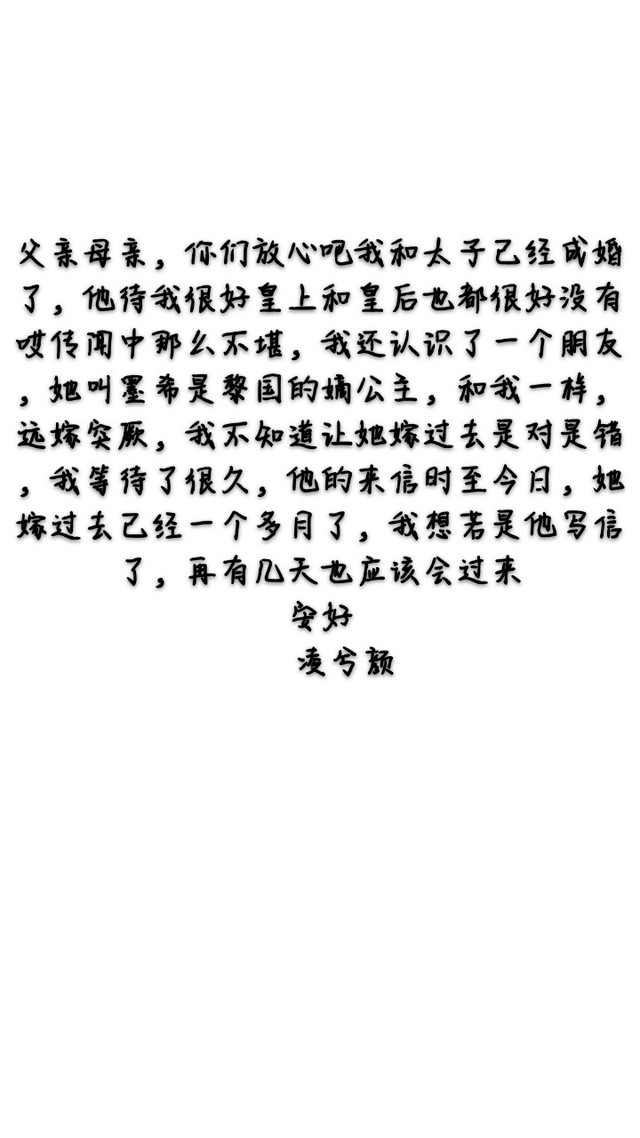 父亲母亲，你们放心吧我和太子已经成婚
了，他待我很好皇上和皇后也都很好没有
哎传闻中那么不堪，我还认识了一个朋友
，她叫墨希是黎国的嫡公主，和我一样，
远嫁突厥，我不知道让她嫁过去是对是错
，我等待了很久，他的来信时至今日，她
嫁过去已经一个多月了，我想若是他写信
了，再有几天也应该会过来
安好
凌兮颜